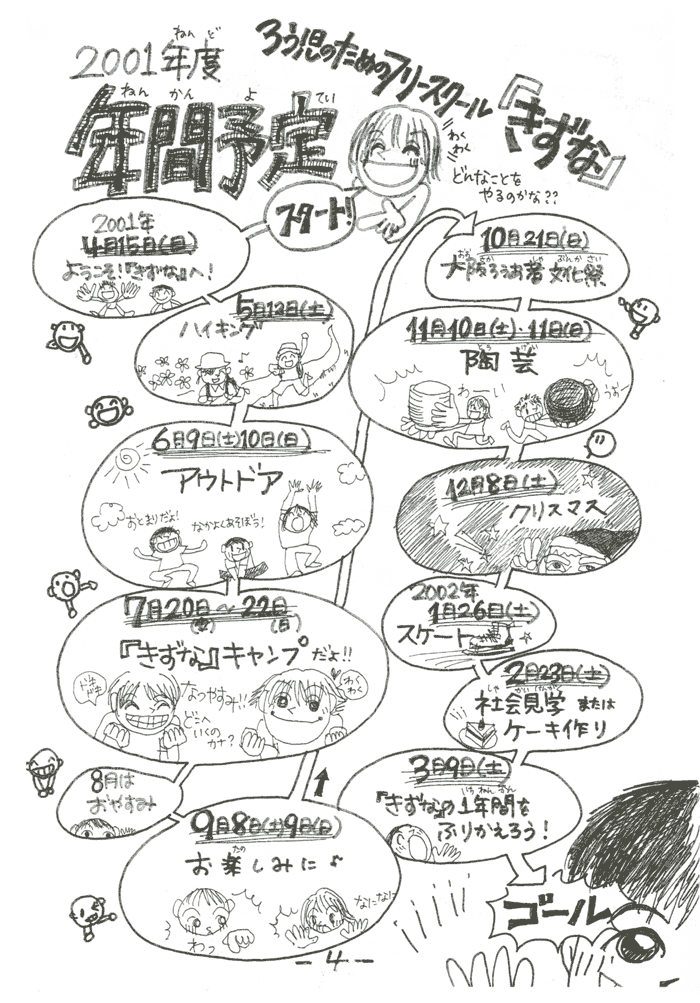 2001年度
ねんど
ろう児のためのフリースクール『きずな』
年間予定
ねんかんよてい
わくわく
どんなことを
やるのかな??
スタート!
2001年
4月15日(日)
ようこそ!『きずな』へ!
5月12日(土)
ハイキング
6月9日(土)10日(日)
アウトドア
おとまりだよ!
なかよくあそぼう!
7月20日(金)〜22日(日)
『きずな』キャンプだよ!!
ドキドキ
なつやすみ!!
どこへ
いくの
カナ?
わくわく
8月は
おやすみ
9月8日(土)9日(日)
お楽しみに♪
たの
わっ
なになに
10月21日(日)
大阪ろうあ者文化祭
おおさか しゃ ぶんかさい
11月10日(土)・11日(日)
陶芸
とうげい
わーい
うおー
12月8日(土)
クリスマス
2002年
1月26日(土)
スケート
2月23日(土)
社会見学または
しゃかいけんがく
ケーキ作り
3月9日(土)
『きずな』の1年間を
いちねんかん
ふりかえろう!
ゴール
-4-